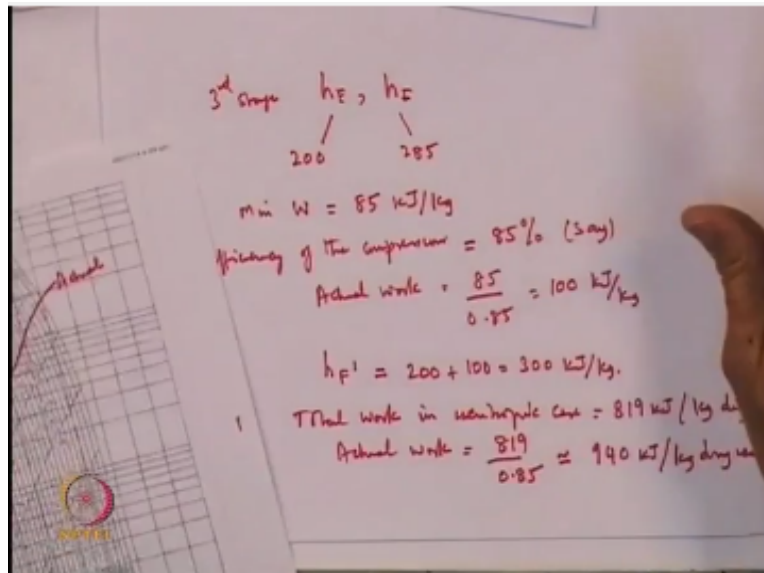 3rd stage hE, hF
200 285
Min W = 85 kJ/kg
fficiency of the compressor = 85% (say)
Actual work = 85/0.85 = 100 kJ/kg
Actual
hF' = 200 + 100 = 300 kJ/kg.
Total work in isentropic case = 819 kJ/kg dry
Actual work = 819/0.85 ≃ 940 kJ/kg dry
NPTEL